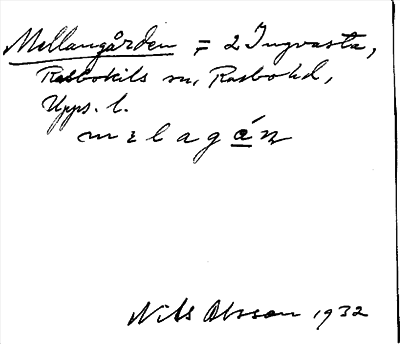 Mellangården = 2 Ingvasta,
Rasbokils sn, Rasbo hd,
Upps. l.
melagán
Nils Olsson 1932